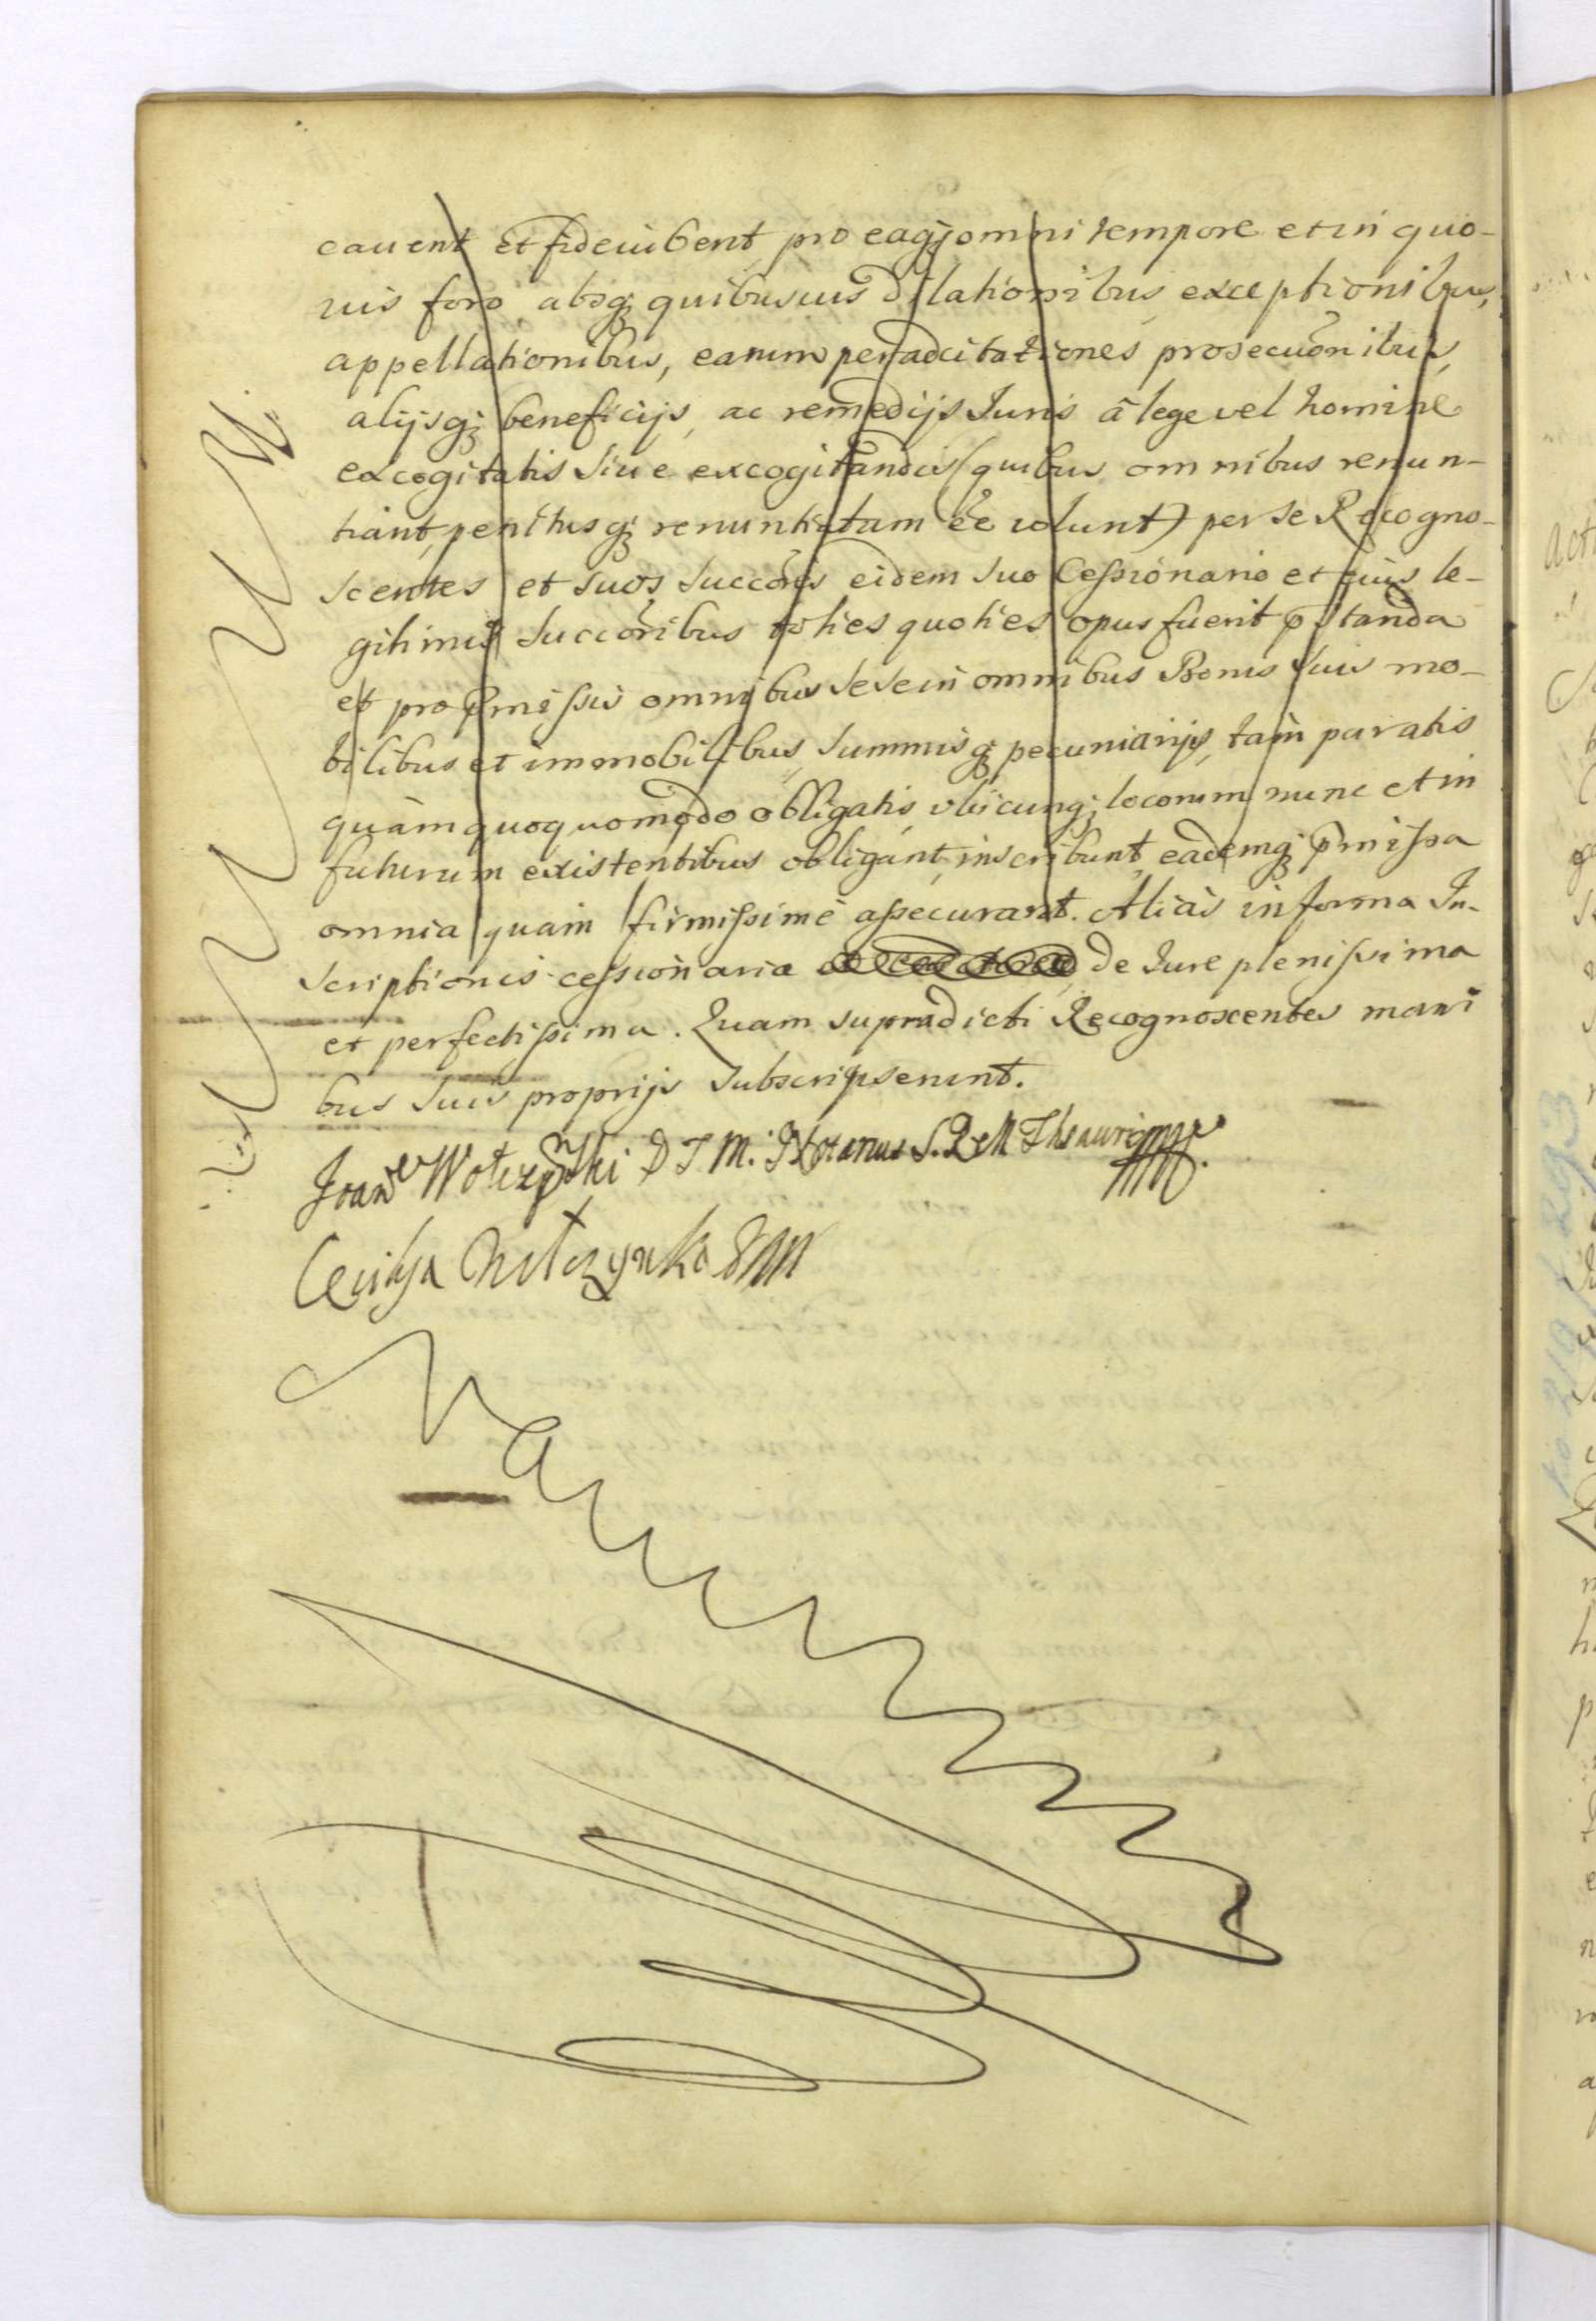 cauent et fideiubent pro eaqȝ omni tempore et in quo-
uis foro absqȝ quibusuis dilationibus exceptionibus,
appellationibus, earum per adcitationes prosecuõnibus,
alijsqȝ beneficijs, ac remedijs Juris â lege vel homine
excogitatis siue excogitandis (quibus omnibus renun-
tiant, penitusqȝ renuntiatum eẽ uolunt) per se Recogno-
scentes et suos succoȓes eidem suo Cessionario et eius le-
gitimis succoȓibus toties quoties opus fuerit p̃standa
et pro p̃missis omnibus sese in omnibus Bonis suis mo-
bilibus et immobilibus, summisqȝ pecuniarijs, tam paratis
quàm quoquomodo obligatis, vbicunqȝ locorum nunc et in
futurum existentibus obligant, inscribunt, eademqȝ p̃missa
omnia quam firmissimè assecurant. Aliàs in forma In-
scriptionis cessionaria de Jure plenissima
et perfectissima. Quam supradicti Recognoscentes mani
bus suis proprijs subscripserunt.
Joan Wolczynski Notarius S. R. M Thesauri
Cecilya Wolczynska